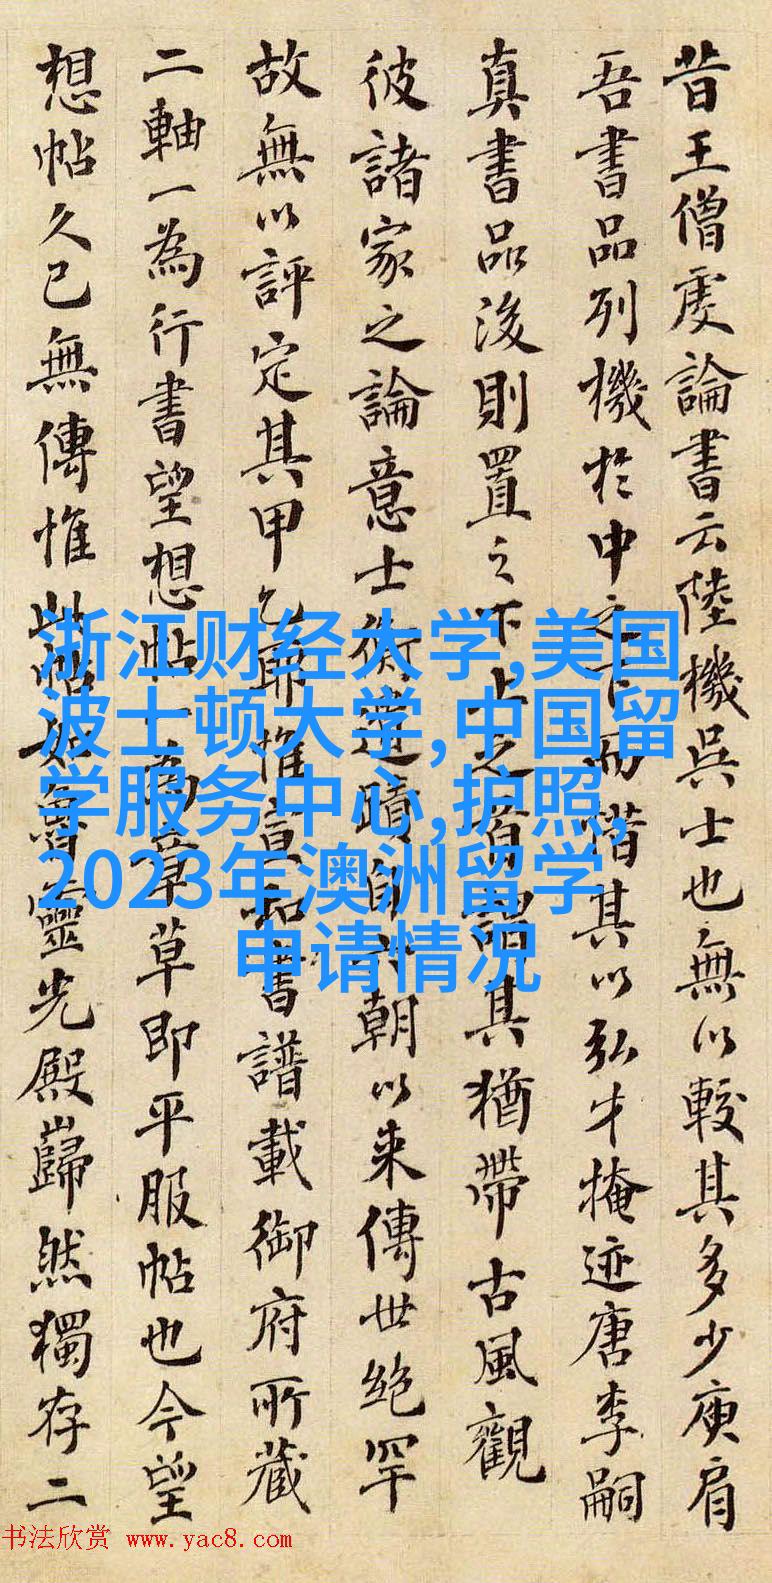 昔王僧虔論書云陸機吳士也無以較其多少庾肩
吾書品列機於中之下而惜其以弘才掩迹唐李嗣
真書品後則置之下上之首謂其猶帶古風觀
彼諸家之論意士衡遺蹟自六朝以来傳世絶罕
故無以評定其甲乙耶惟宣和書譜載御府所蔵
二軸一為行書望想帖一為章草即平服帖也今望
想帖久已無傳惟此帖如魯靈光殿巋然獨存二
浙江财经大学,美国
波士顿大学,中国留
学服务中心,护照,
2023年澳洲留学
申请情况
书法欣赏 www.yac8.com